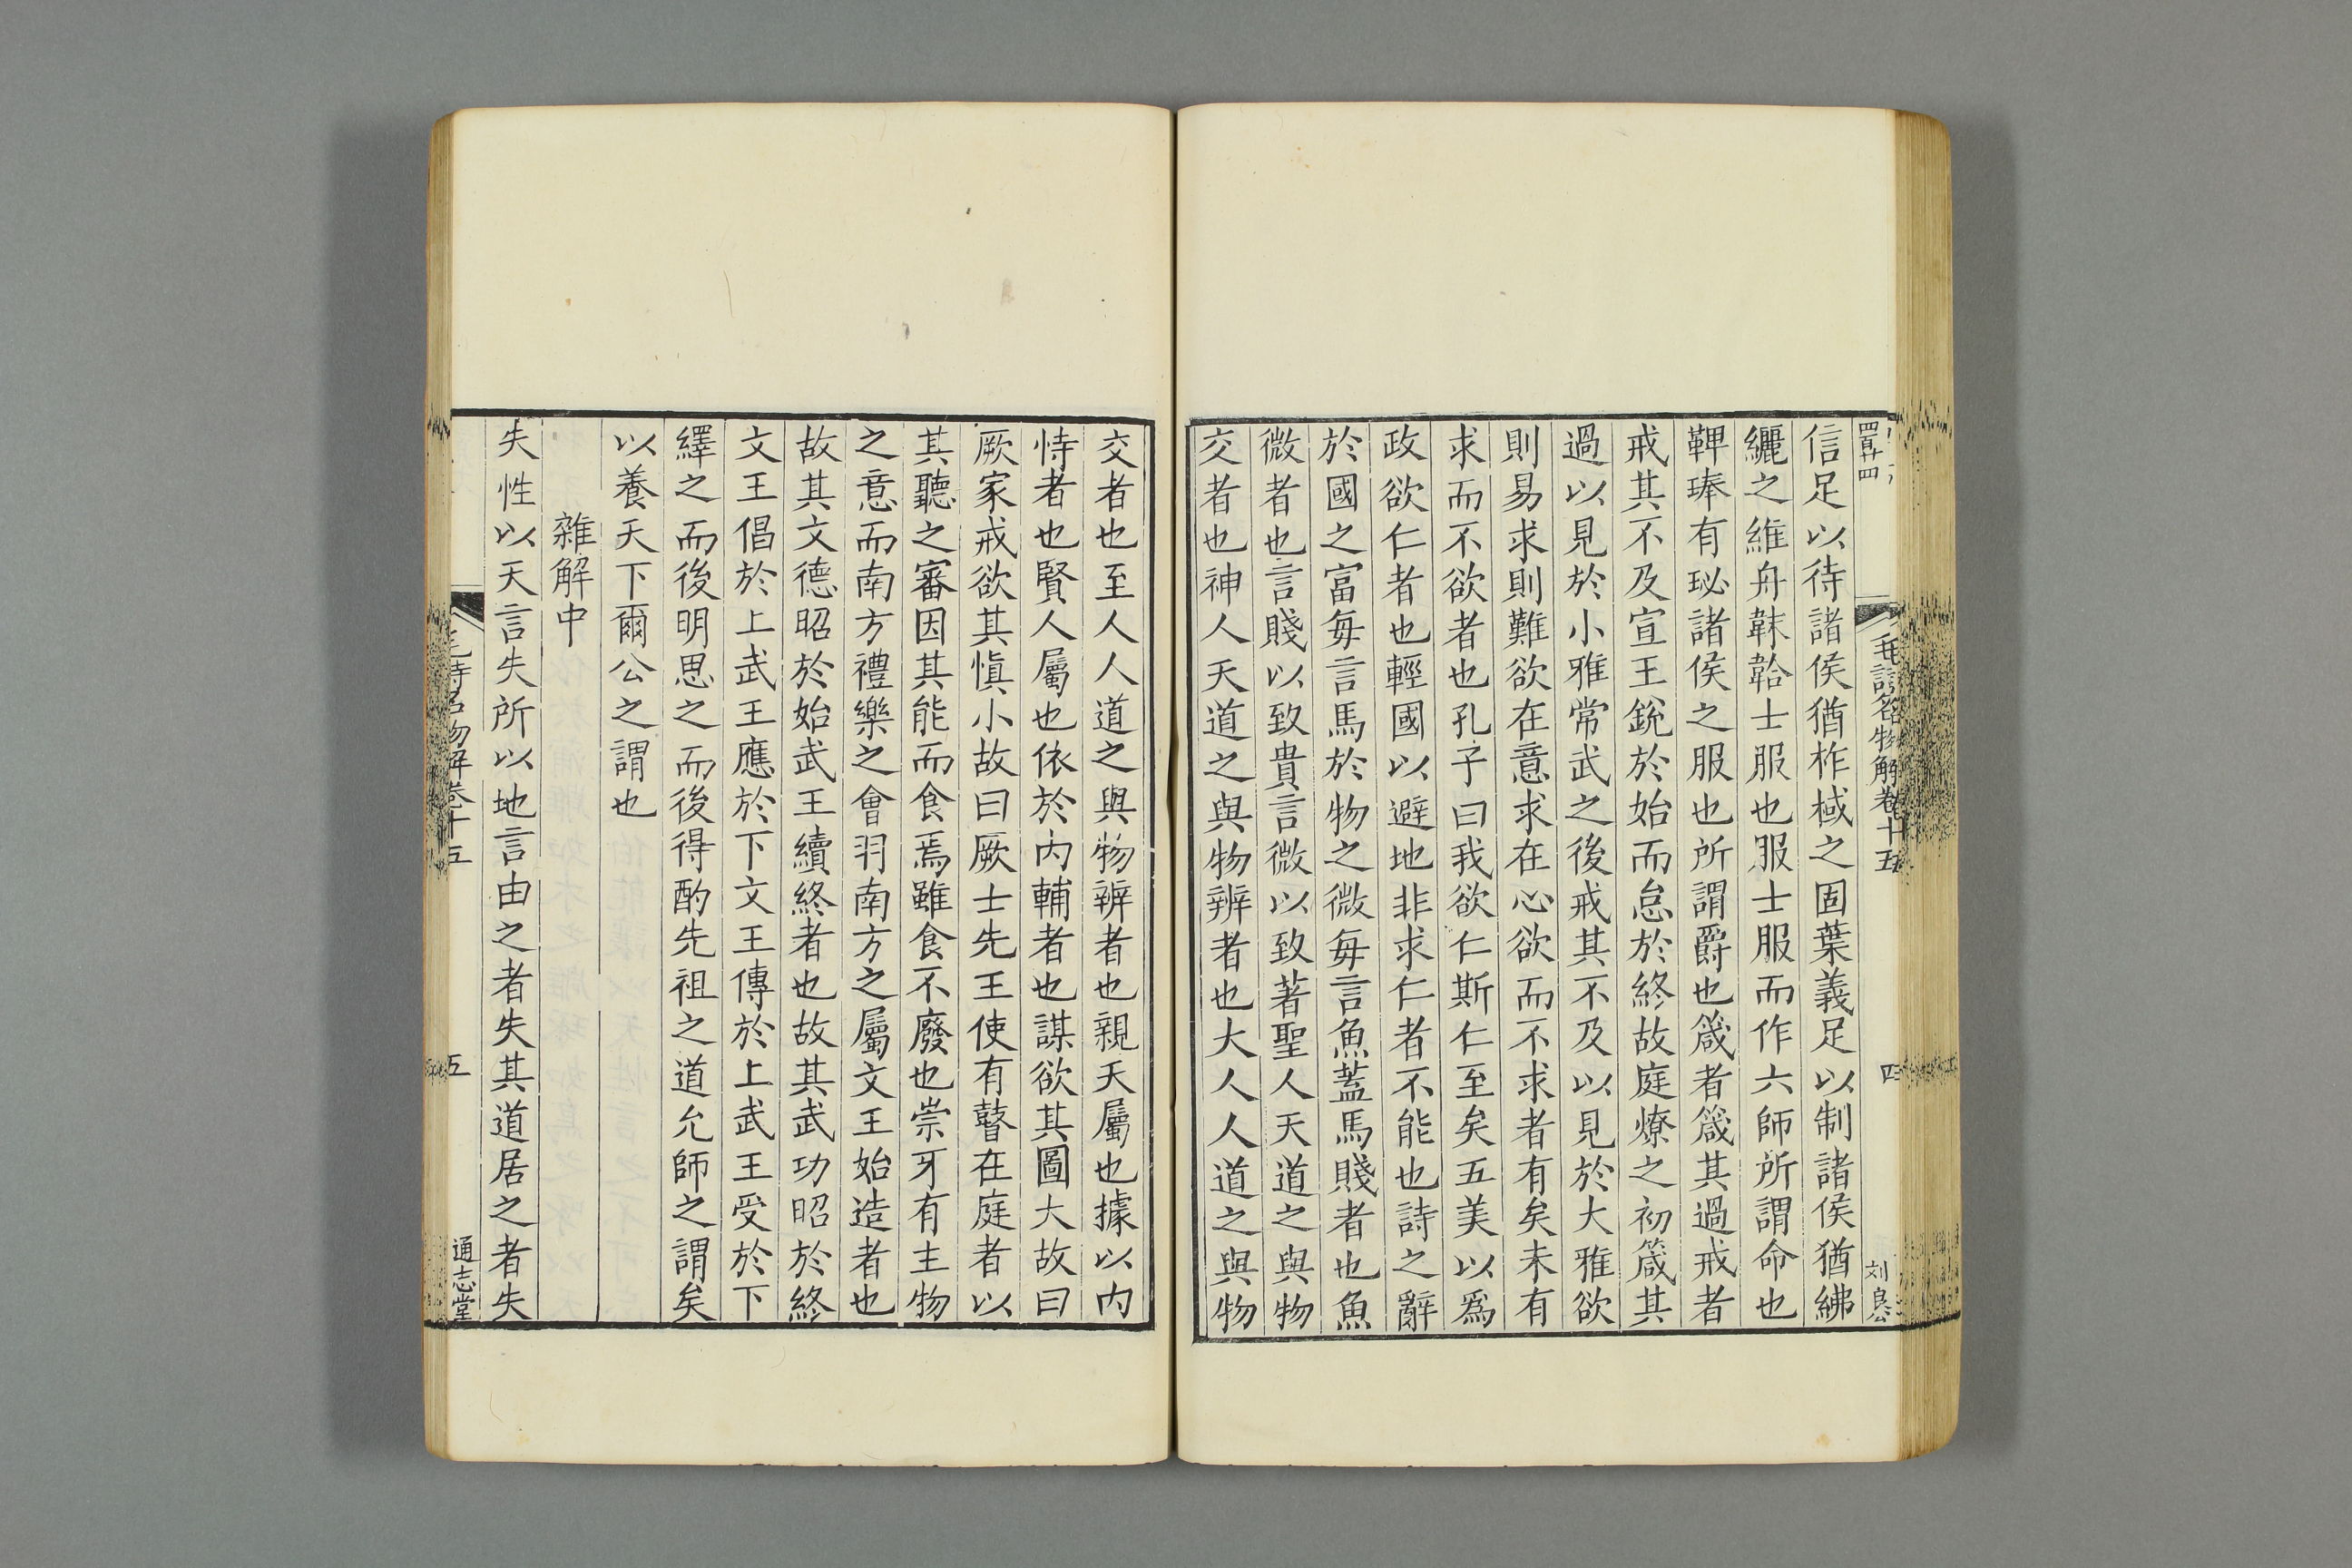 四百廿四
毛詩名物解卷十五
四
刘良公
信足以待諸侯猶柞棫之固葉義足以制諸侯猶紼
纚之維舟韎韐士服也服士服而作六師所謂命也
鞞琫有珌諸侯之服也所謂爵也箴者箴其過戒者
戒其不及宣王銳於始而怠於終故庭燎之初箴其
過以見於小雅常武之後戒其不及以見於大雅欲
則易求則難欲在意求在心欲而不求者有矣未有
求而不欲者也孔子曰我欲仁斯仁至矣五美以爲
政欲仁者也輕國以避地非求仁者不能也詩之辭
於國之富毎言馬於物之微毎言魚蓋馬賤者也魚
微者也言賤以致貴言微以致著聖人天道之與物
交者也神人天道之與物辨者也大人人道之與物
交者也至人人道之與物辨者也親天屬也據以内
恃者也賢人屬也依於内輔者也謀欲其圖大故曰
厥家戒欲其慎小故曰厥士先王使有瞽在庭者以
其聽之審因其能而食焉雖食不廢也崇牙有主物
之意而南方禮樂之會羽南方之屬文王始造者也
故其文德昭於始武王續終者也故其武功昭於終
文王倡於上武王應於下文王傳於上武王受於下
繹之而後明思之而後得酌先祖之道允師之謂矣
以養天下爾公之謂也
雜解中
失性以天言失所以地言由之者失其道居之者失
毛詩名物解卷十五
五
通志堂